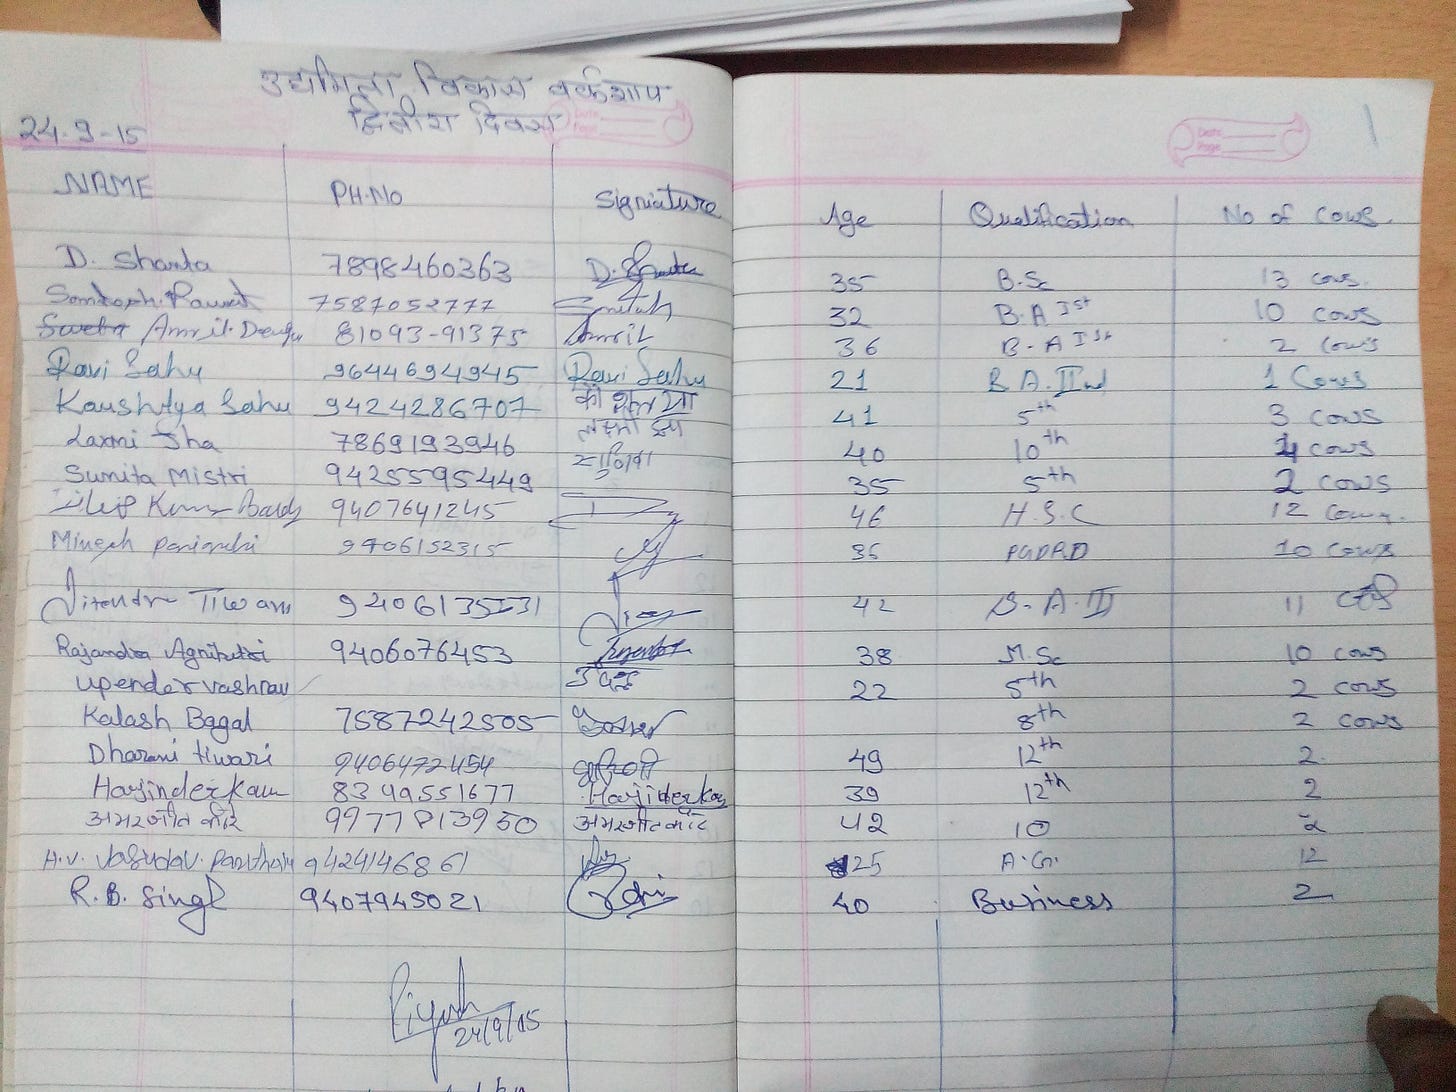 उद्यमिता विकास वर्कशाप
द्वितीय दिवस
24-9-15
NAME PH.No Signature Age Qualification No of cows
D. Shanta 7898460363 D. Shanta 35 B.Sc 13 cows
Santosh Rawat 7587052777 32 B.A Ist 10 cows
Amrit 81093-91375 Amrit 36 B-A Ist 2 cows
Ravi Sahu 9644694945 Ravi Sahu 21 B.A. IInd 1 Cows
Kaushlya Sahu 9424286707 41 5th 3 cows
Laxmi Sha 7869193946 40 10th 4 cows
Sunita Mistri 9425595449 35 5th 2 cows
Dilip Kumar 9407641245 46 H.S.C 12 cows
Minesh 9406152315 35 10 cows
Jitendra Tiwari 9406135531 42 B.A.II 11
Rajandra Agnihotri 9406076453 38 M.Sc 10 cows
Upender vashnav 22 5th 2 cows
Kalash Bagal 7587242505 8th 2 cows
Dharani tiwari 9406472454 49 12th 2
Harjinder Kaur 8349551677 Harjider Kaur 39 12th 2
अमरजीत कौर 9977813950 अमरजीत कौर 42 10 2
H.V. 9424146861 25 A.G. 12
R.B. Singh 9407945021 40 Business 2
Piyush
24/9/15
Date
Page